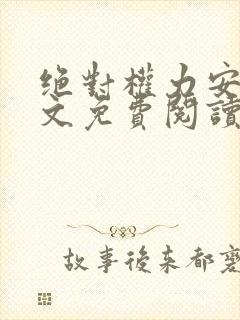 絕對權力安
文免費閱讀
故事後來都